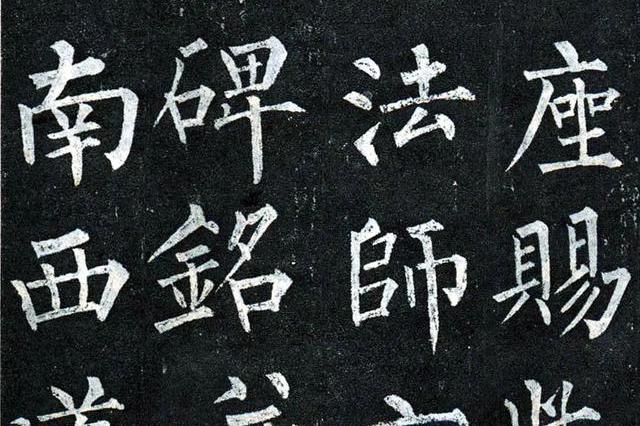 座賜
法師
碑銘
南西